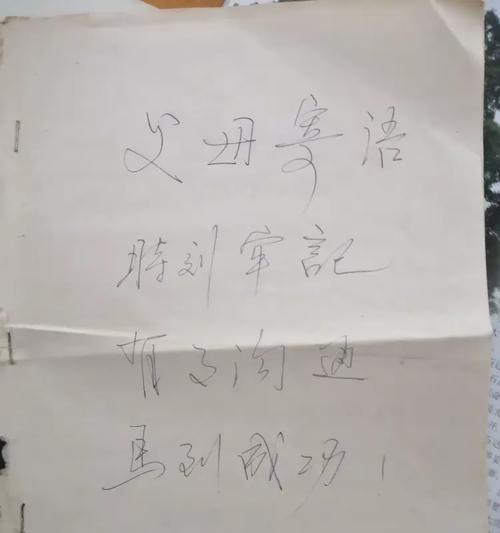 父母寄语
時刻牢記
有了沟通
馬到成功！